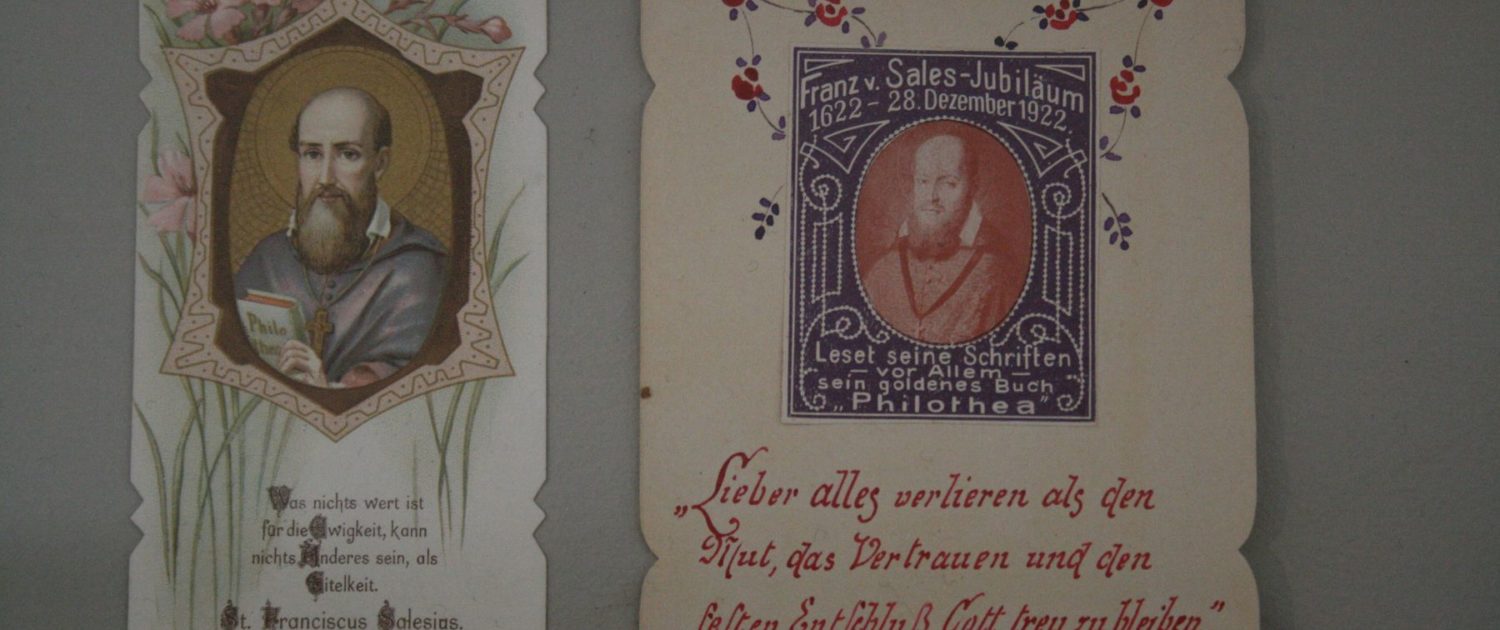 Philo
Was nichts wert ist
für die Ewigkeit, kann
nichts Anderes sein, als
Eitelkeit.
St. Franciscus Salesius.
Franz v. Sales-Jubiläum
1622 - 28. Dezember 1922.
Leset seine Schriften
— vor Allem —
sein goldenes Buch
„Philothea"
„Lieber alles verlieren als den
Mut, das Vertrauen und den
festen Entschluß Gott treu zu bleiben"